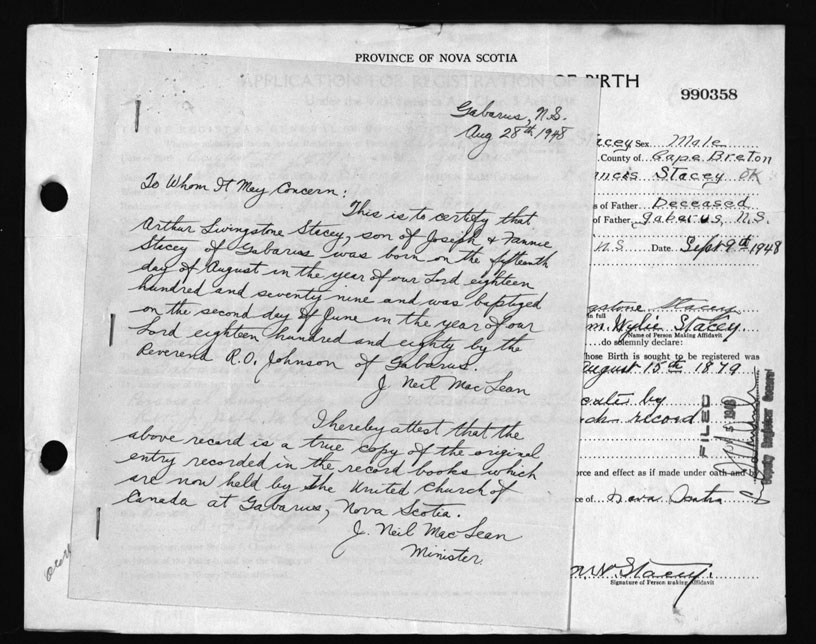 PROVINCE OF NOVA SCOTIA
APPLICATION FOR REGISTRATION OF BIRTH
990358
Gabarus, N.S.
Aug 28th 1948
To Whom It May Concern:
This is to certify that
Arthur Livingstone Stacey, son of Joseph & Fannie
Stacey of Gabarus was born on the fifteenth
day of August in the year of our Lord eighteen
hundred and seventy nine and was baptized
on the second day of June in the year of our
Lord eighteen hundred and eighty by the
Reverend R.O. Johnson of Gabarus.
J Neil MacLean
I hereby attest that the
above record is a true copy of the original
entry recorded in the record books which
are now held by the United Church of
Canada at Gabarus, Nova Scotia.
J. Neil MacLean
Minister.
Stacey Sex Male
County of Cape Breton
Stacey OK
s of Father Deceased
of Father Gabarus, N.S.
N.S Date Sept 9th 1948
gstone Stacey
in full
m. Wylie Stacey
Name of Person Making Affidavit
do solemnly declare:
hose Birth is sought to be registered was
August 15th 1879
by
record
FILED
Deputy Registrar General
orce and effect as if made under oath and by
ce of Nova Scotia
Stacey.
Signature of Person making Affidavit
over